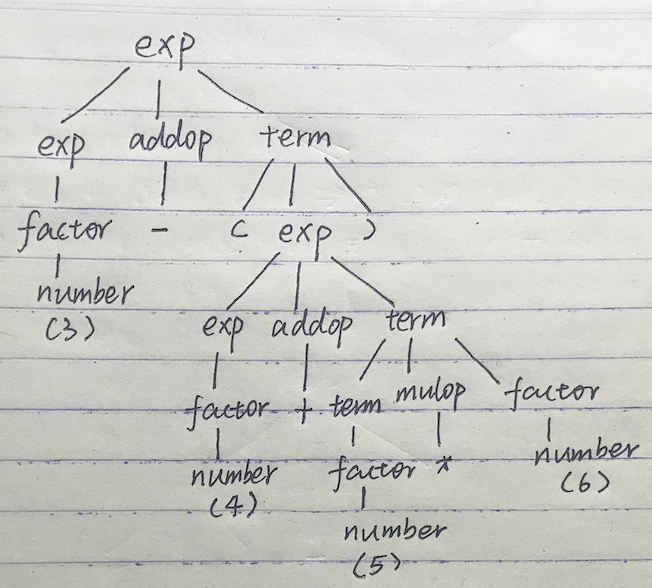 exp
exp addop term
factor - ( exp )
number
(3)
exp addop term
factor + term mulop factor
number factor * number
(4) (6)
number
(5)